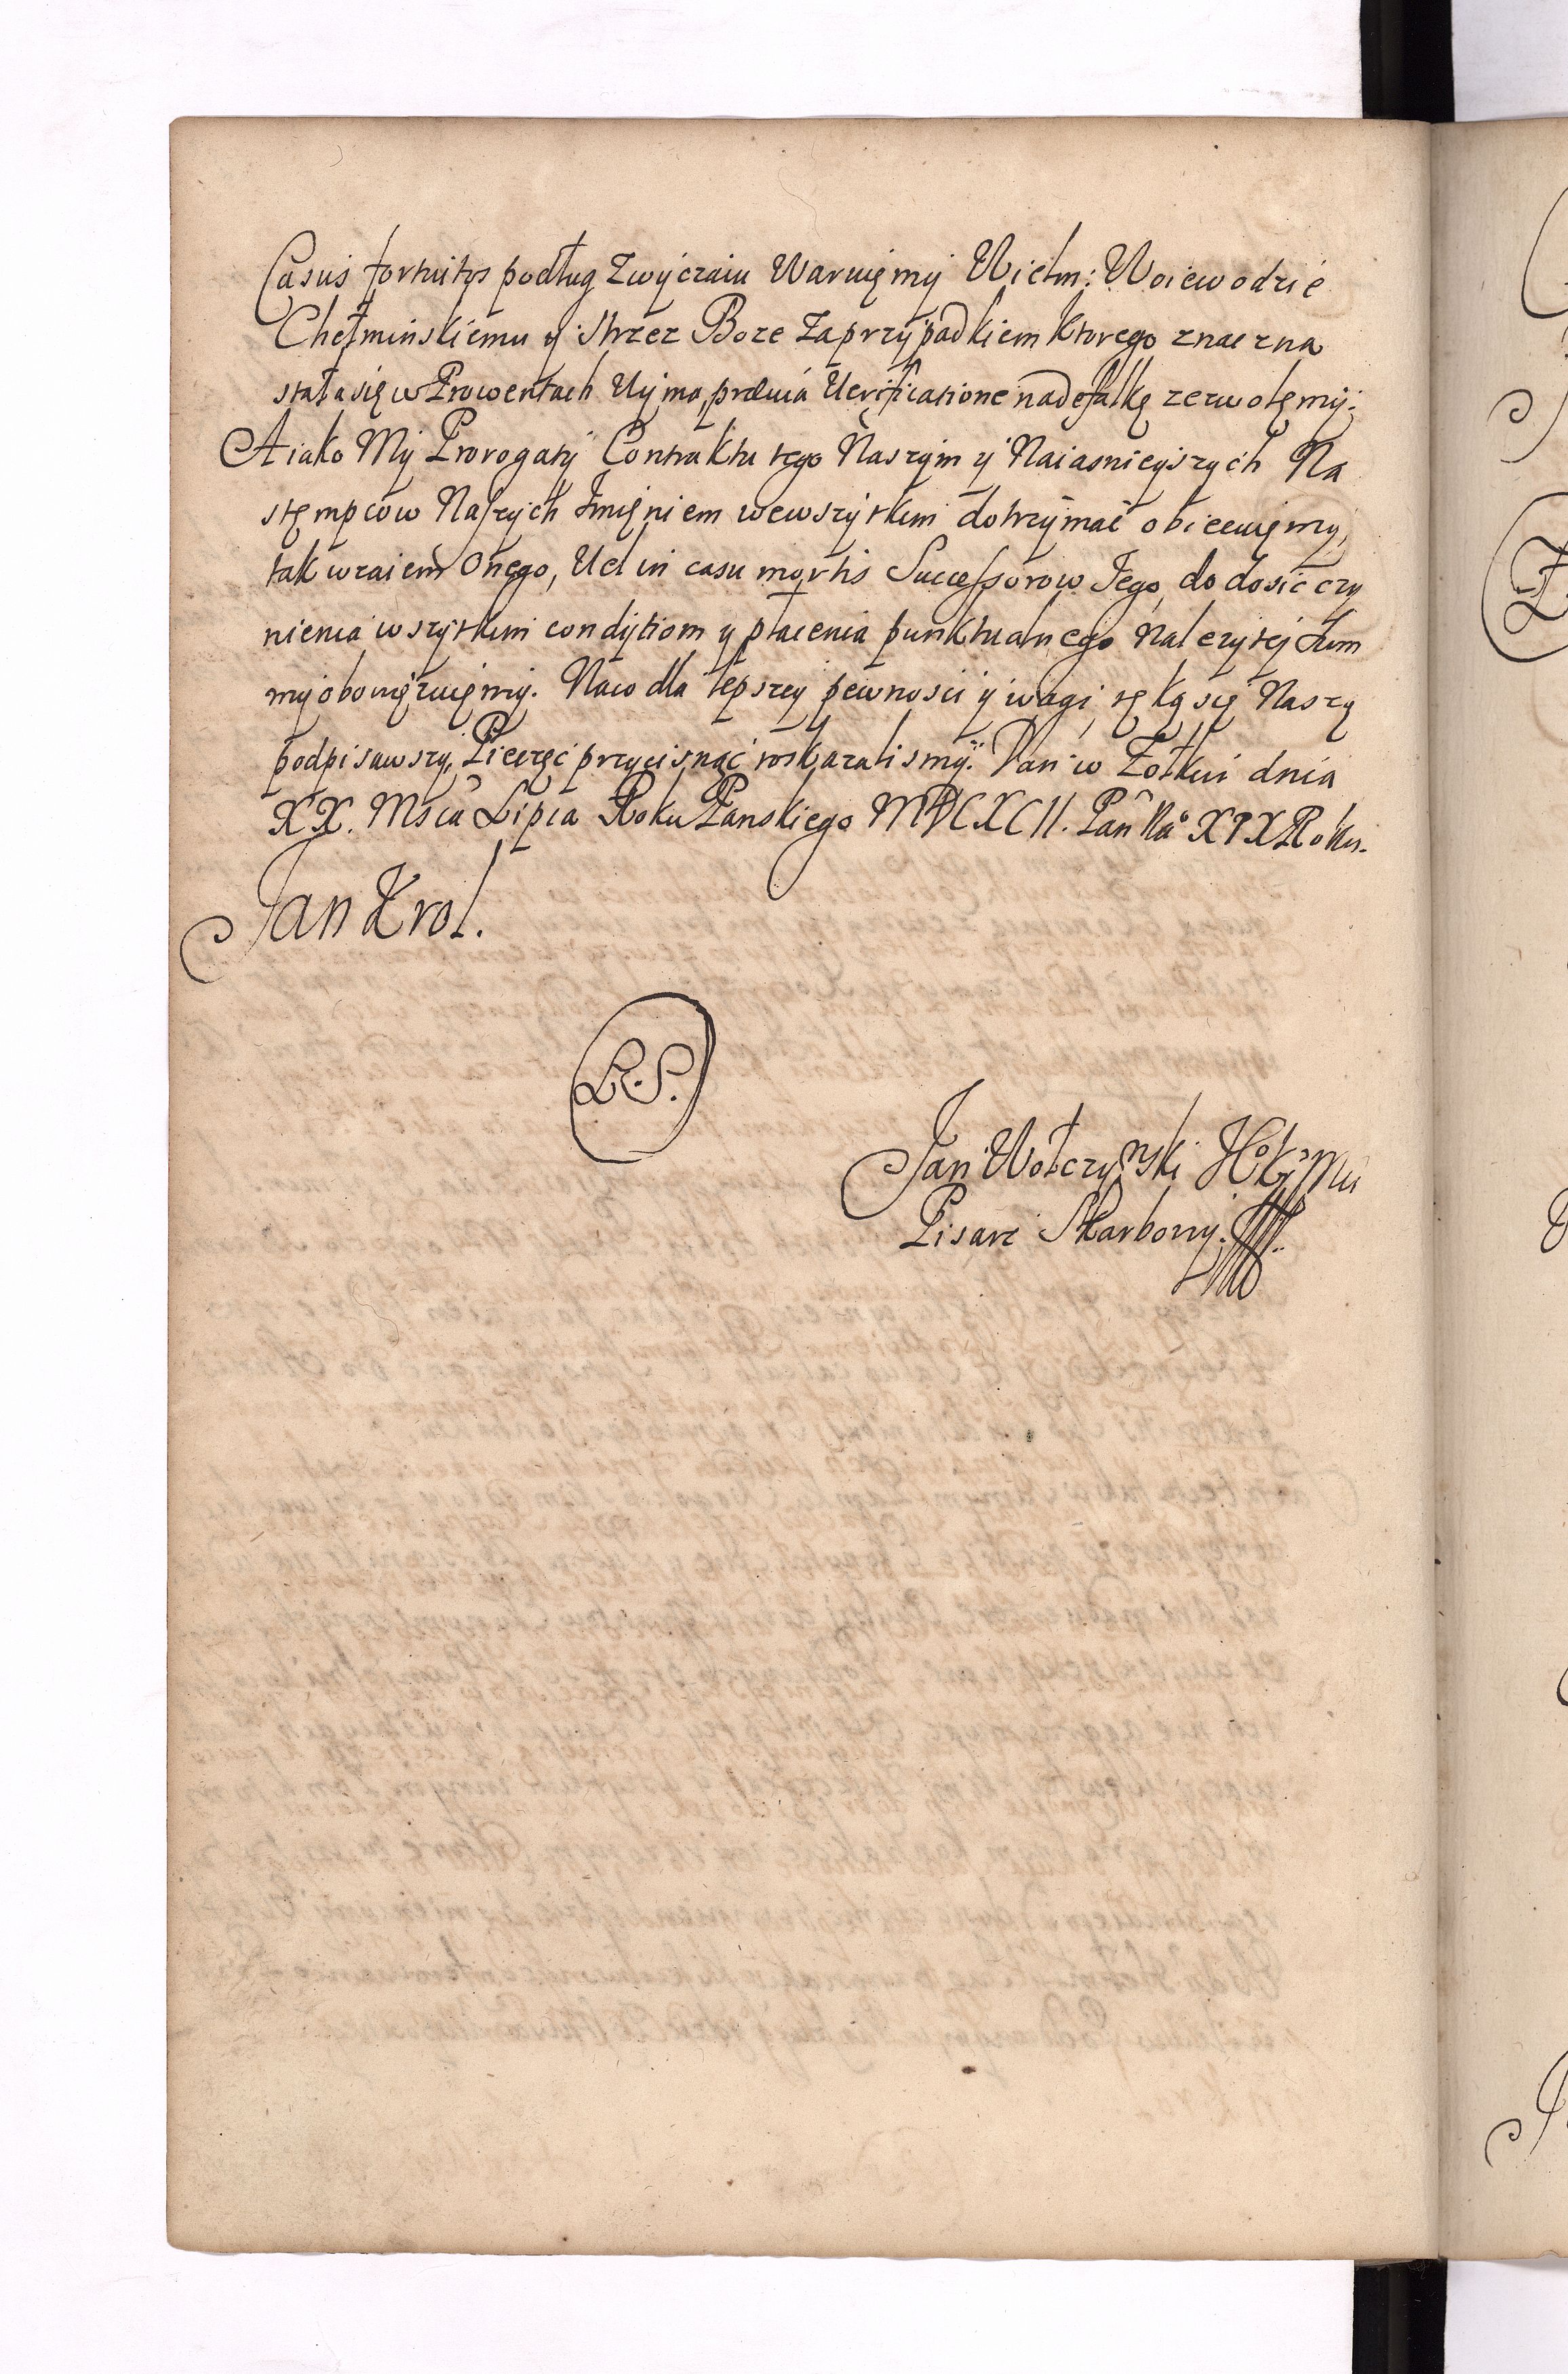 Casus fortuitos podług Zwyczaiu Waruięmy Wielm: Woiewodzie
Chełminskiemu y strzez Boze Zaprzypadkiem ktorego znaczna
stała się w Prowentach Uyma, prævia Verificatione nadefalkę zezwolęmy:
A iako My Prorogaty Contraktu tego Naszym y Naiasnieyszych Na
stęmpcow Naszych Imięniem wewszytkim dotrzymać obiecuięmy,
tak wzaiem Onego, Vel in casu mortis Successorow Jego, do dosić czy
nienia wszytkim condytiom y płacenia punktualnego Nalezytej Sum
my obowięzuięmy. Naco dla lepszey pewnosci y wagi ręką się Naszą
podpisawszy, Pieczęć przycisnąć roskazalismy. Dan w Zołkwi dnia
XX. Msca Lipca Roku Panskiego MDCXCII. Pan Na° XIX Roku.
Jan Krol.
L.S.
Jan Wołczynski JKMci
Pisarz Skarbowy.